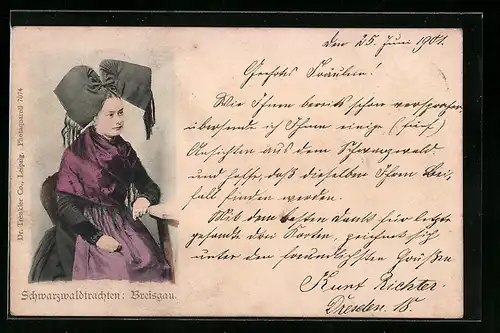 den 25. Juni 1901.
Geehrtes Fräulein!
Wie Ihnen bereits schon versprochen,
übersende ich Ihnen einige (fünf)
Ansichten aus dem Schwarzwald
und hoffe, daß dieselben Ihren Bei-
fall finden werden.
Mit dem besten Dank für letzt
gesandte drei Karten, zeichnet sich
unter den freundlichsten Grüßen
Kurt Richter
Dresden. 18.
Dr. Trenkler Co., Leipzig. Photaquarell 7074
Schwarzwaldtrachten: Breisgau